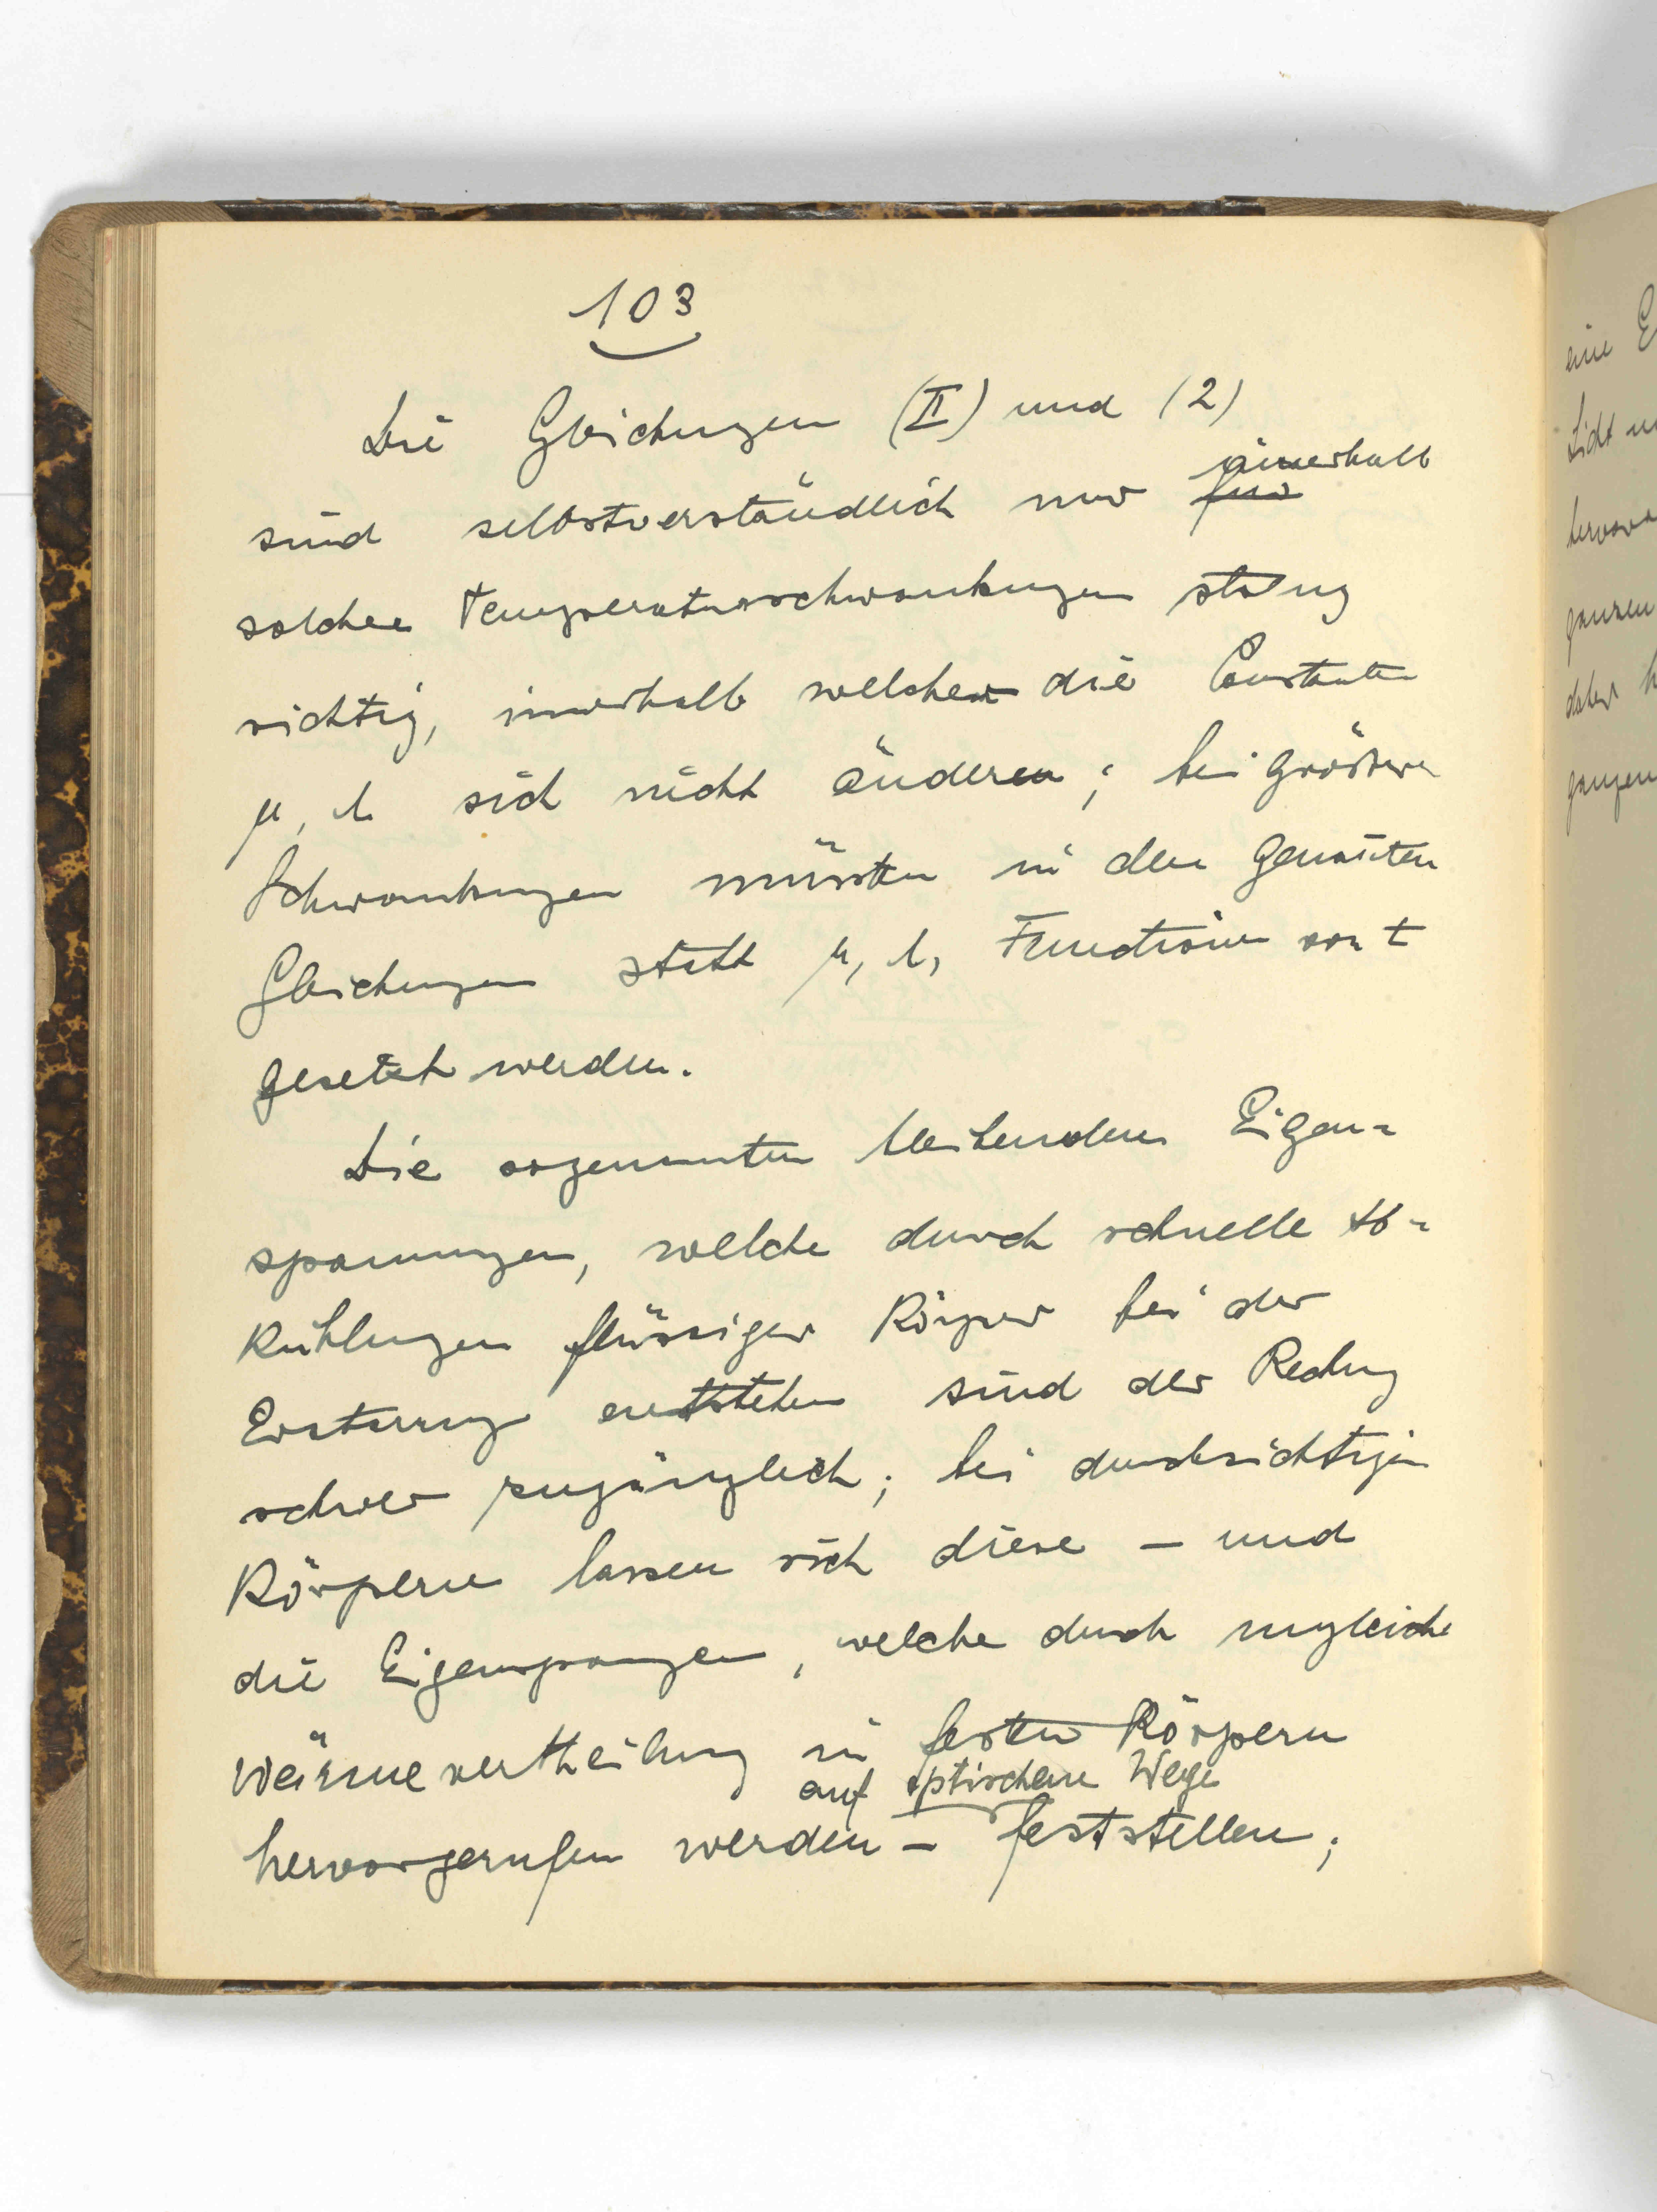 103
Die Gleichungen (II) und (2)
innerhalb
sind selbstverständlich nur für
solcher Temperaturschwankungen streng
richtig, innerhalb welcher die Constanten
μ, λ sich nicht änderen; bei grösseren
Schwankungen müssten in den genannten
Gleichungen statt μ, λ, Functionen von t
gesetzt werden.
Die sogenannten bleibenden Eigen-
spannungen, welche durch schnelle Ab-
kühlungen flüssiger Körper bei der
Erstarrung entstehen sind der Rechnung
schwer zugänglich; bei durchsichtigen
Körpern lassen sich diese – und
die Eigenspannungen, welche durch ungleiche
Wärmevertheilung in festen Körpern
auf optischem Wege
hervorgerufen werden – feststellen;
eine
Licht
ganzen
daher